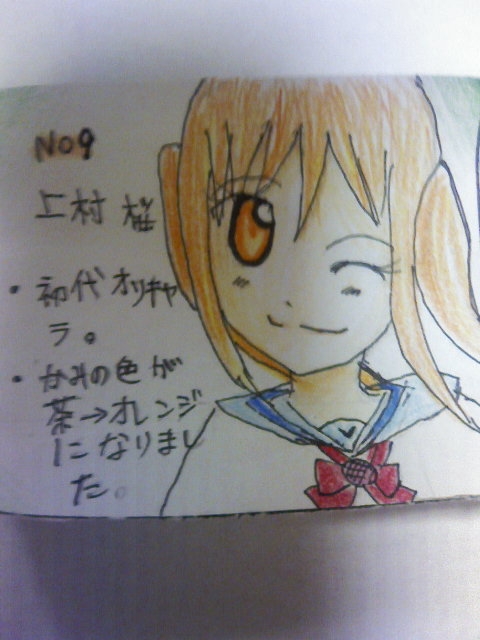 No9
上村 桜
・初代オリキャ
ラ。
・かみの色が
茶→オレンジ
になりまし
た。